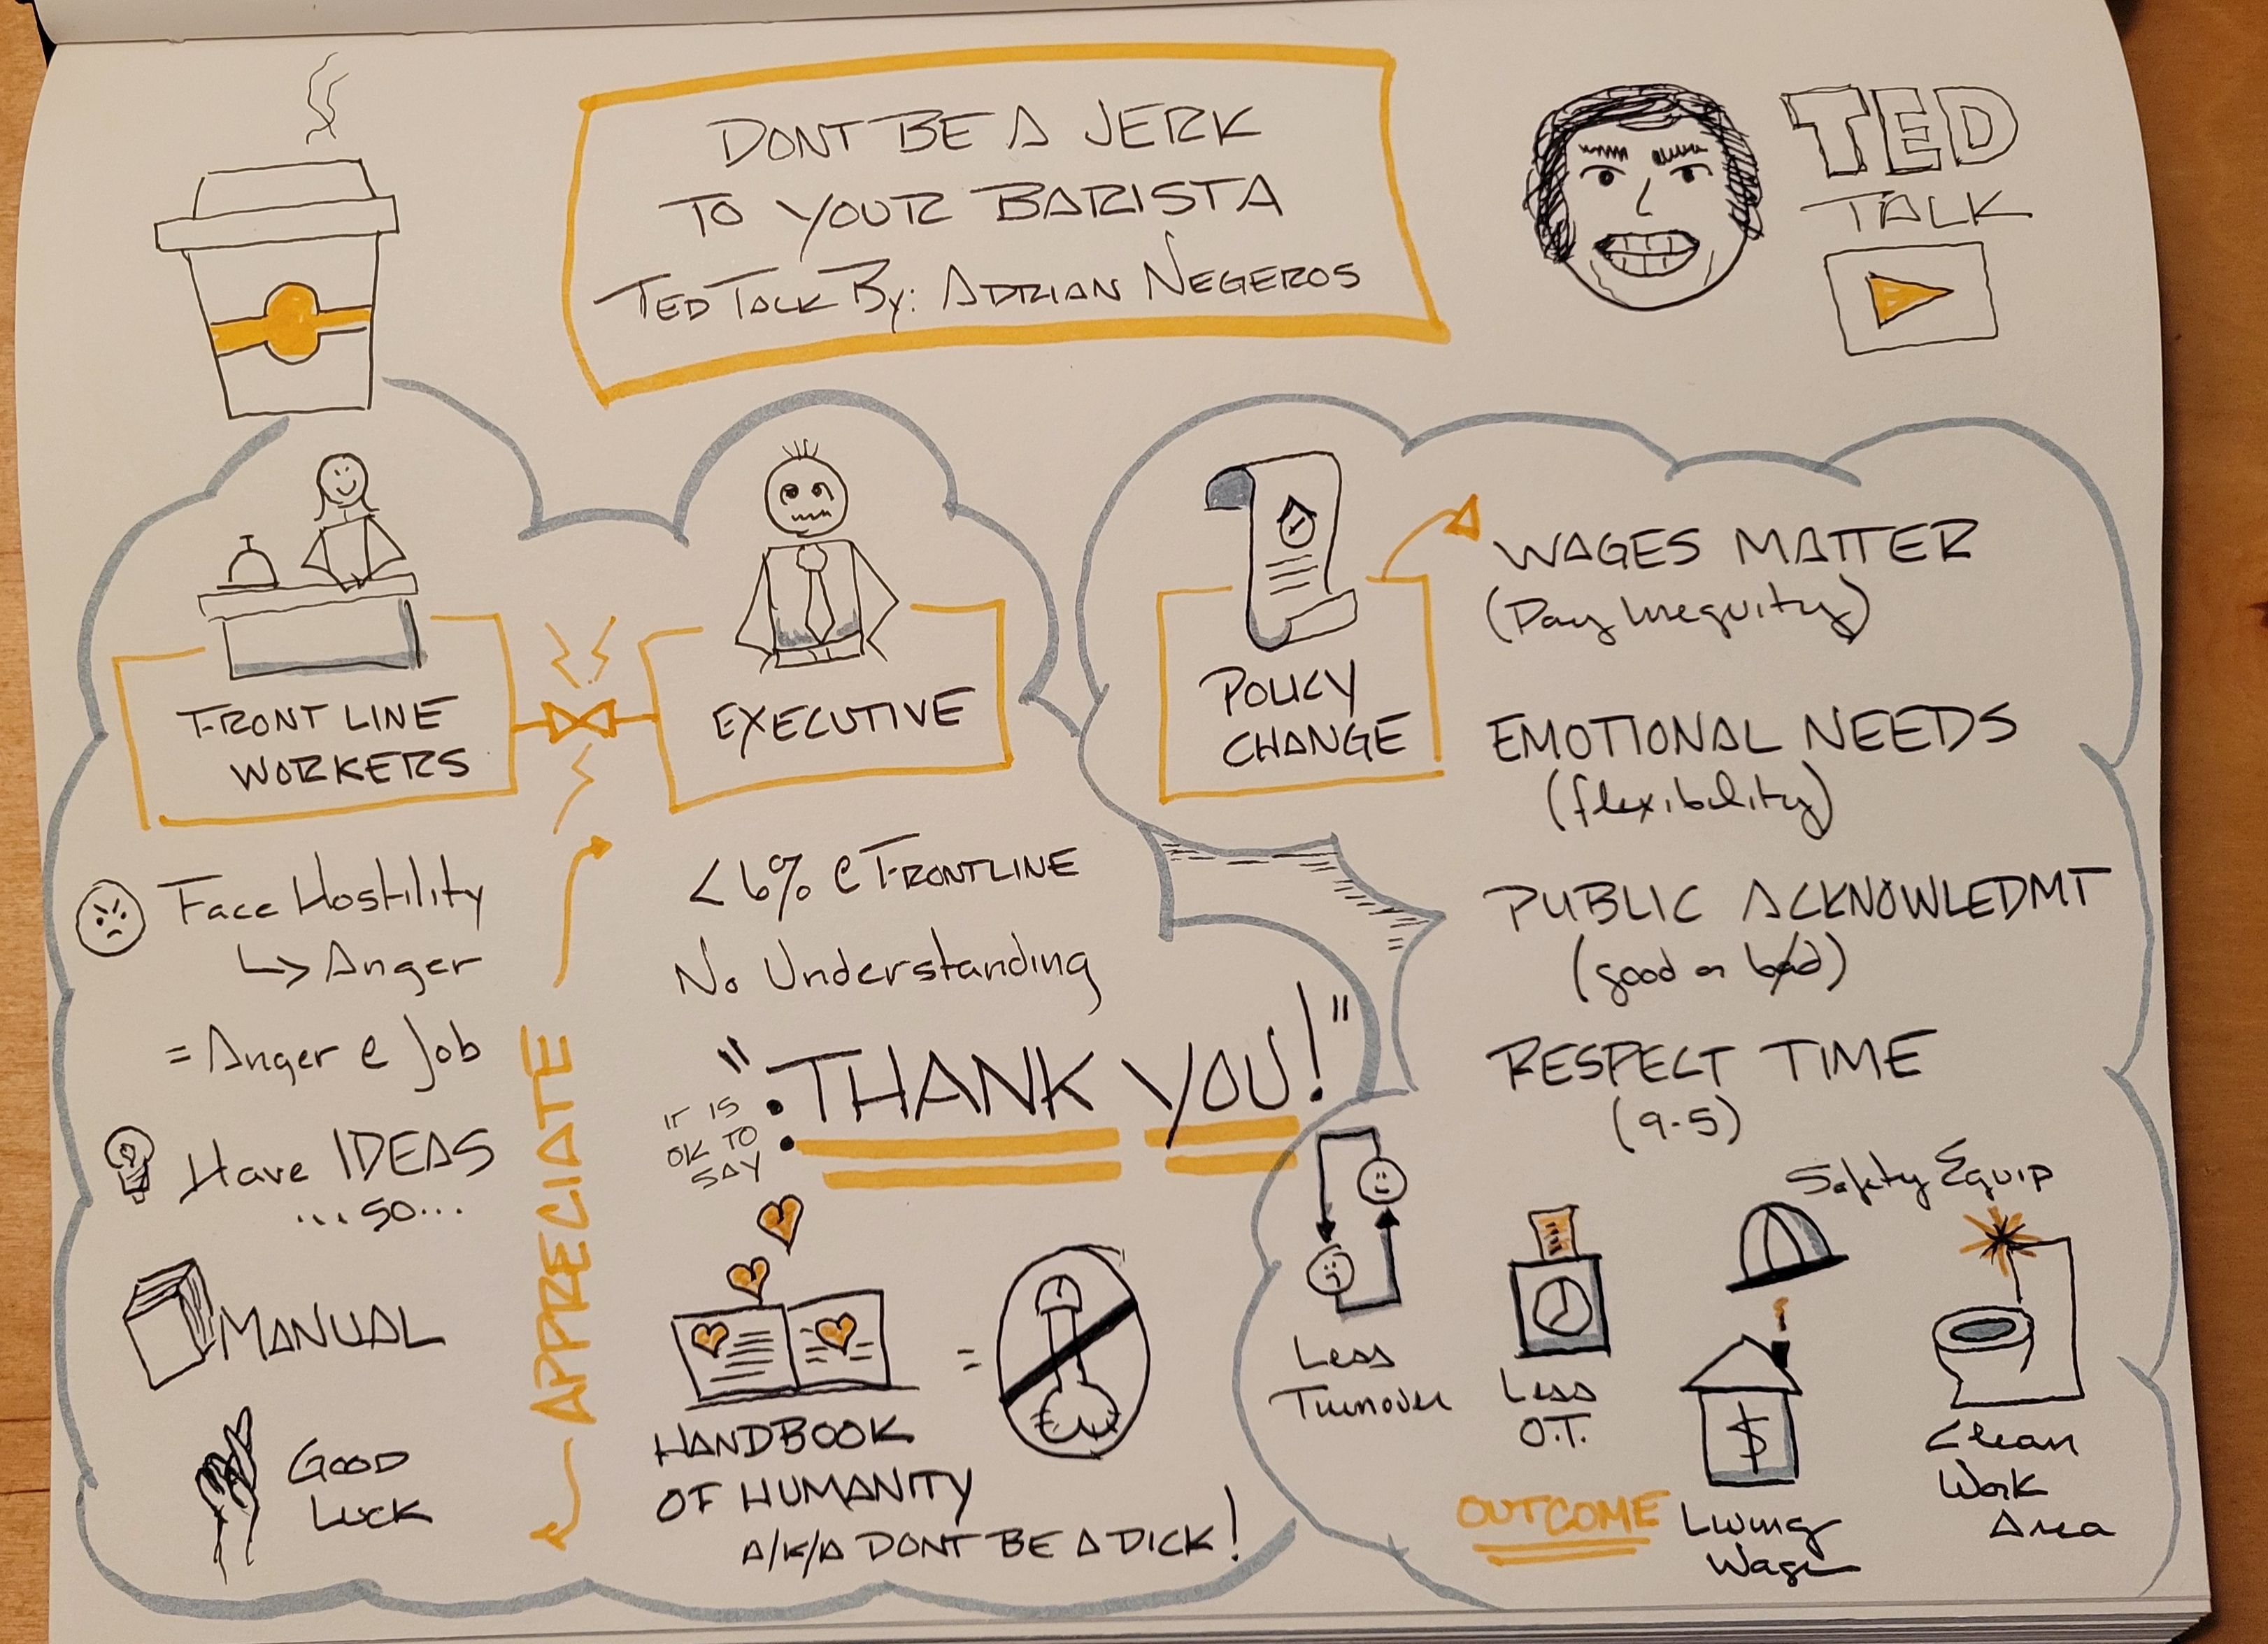 DONT BE A JERK
TO YOUR BARISTA
TED TALK By: ADRIAN NEGEROS
TED
TALK
FRONT LINE
WORKERS
EXECUTIVE
Face Hostility
↳ Anger
= Anger @ Job
Have IDEAS
... SO...
MANUAL
GOOD
LUCK
APPRECIATE
< 6% @ FRONTLINE
No Understanding
IT IS
OK TO
SAY
"THANK YOU!"
HANDBOOK
OF HUMANITY
=
A/K/A DONT BE A DICK!
POLICY
CHANGE
WAGES MATTER
(Pay Inequity)
EMOTIONAL NEEDS
(flexibility)
PUBLIC ACKNOWLEDMT
(good or bad)
RESPECT TIME
(9-5)
Less
Turnover
Less
O.T.
Safety Equip
$
Living
Wage
Clean
Work
Area
OUTCOME